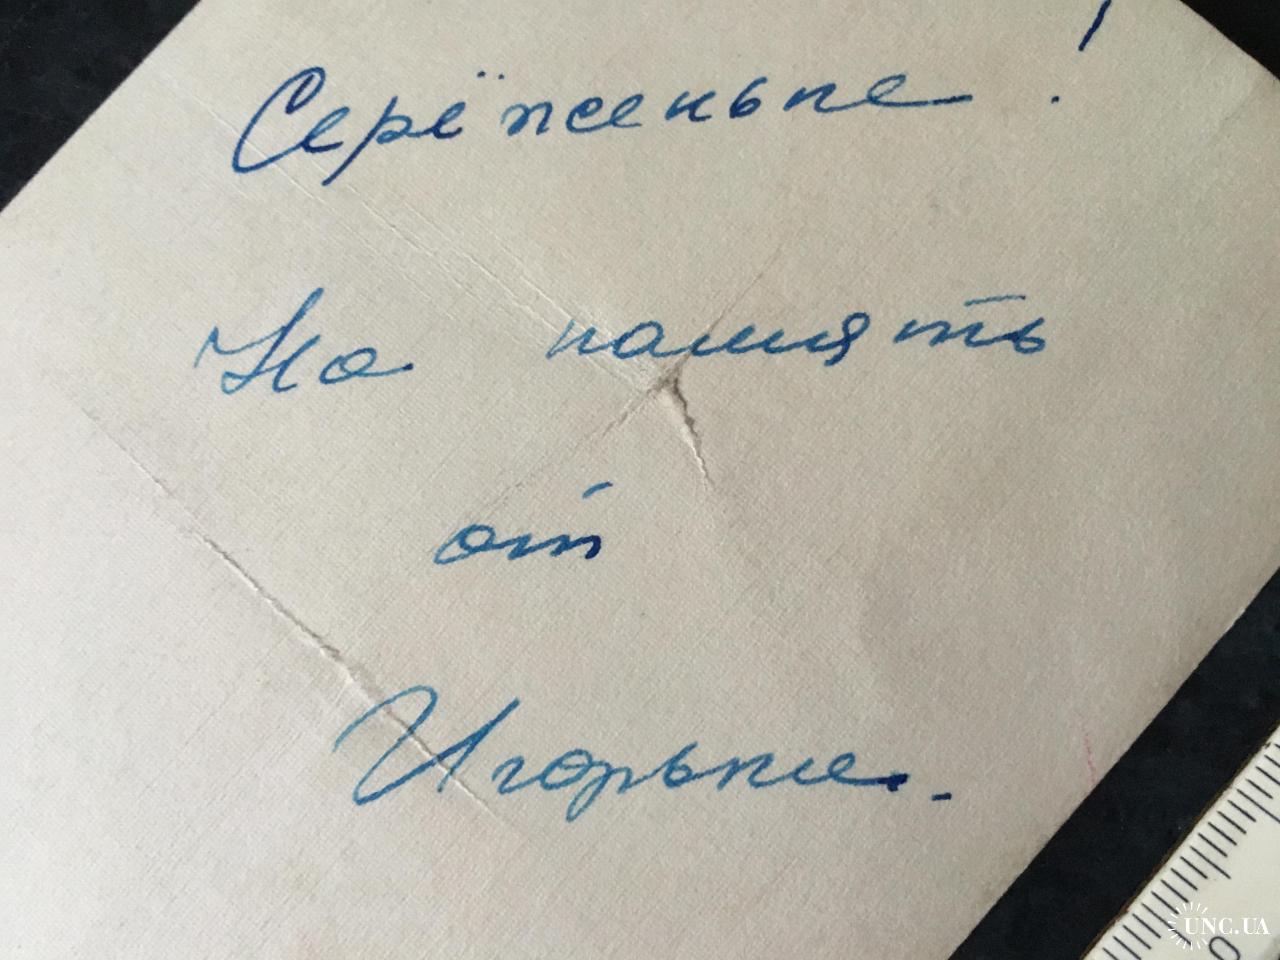 Серёженьке!
На память
от
Игорька.
UNC.UA